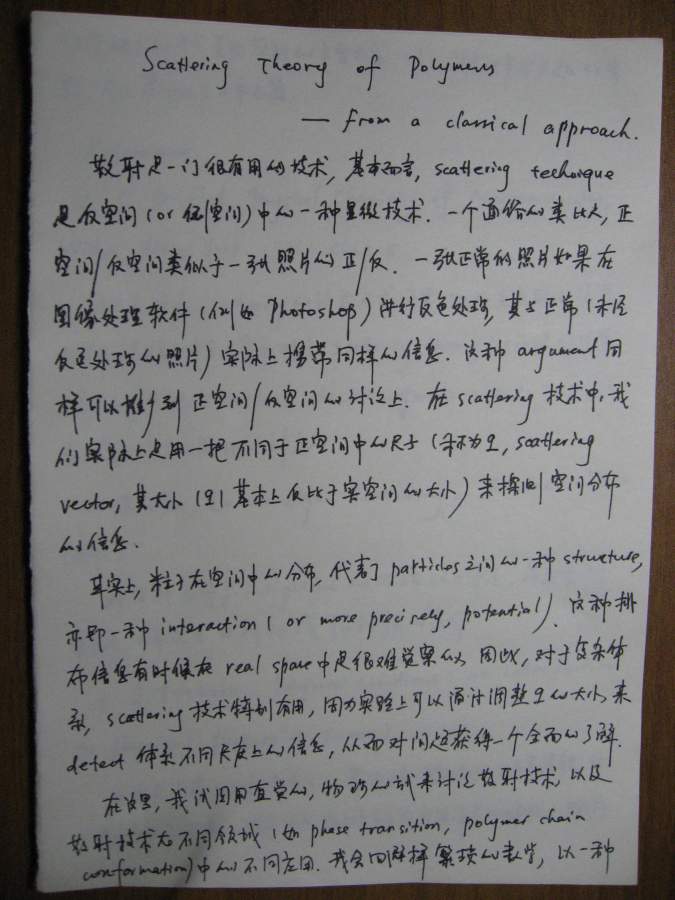 Scattering Theory of Polymers
— from a classical approach.
散射是一门很有用的技术, 基本而言, scattering technique
是反空间 (or 倒空间) 中的一种显微技术. 一个通俗的类比是, 正
空间/反空间类似于一张照片的正/反. 一张正常的照片如果在
图像处理软件 (例如 Photoshop) 进行反色处理, 其与正常 (未经
反色处理的照片) 实际上携带同样的信息. 这种 argument 同
样可以推广到 正空间/反空间的讨论上. 在 scattering 技术中, 我
们实际上是用一把不同于正空间中的尺子 (称为 q, scattering
vector, 其大小 |q| 基本上反比于实空间的大小) 来探测空间分布
的信息.
其实上, 粒子在空间中的分布, 代表了 particles 之间的一种 structure,
亦即一种 interaction ( or more precisely, potential). 这种排
布信息有时候在 real space 中是很难觉察的. 因此, 对于复杂体
系, scattering 技术特别有用, 因为实验上可以通过调整 q 的大小, 来
detect 体系不同尺度上的信息, 从而对问题获得一个全面的了解.
在这里, 我试图用直觉的, 物理的 来讨论散射技术, 以及
散射技术在不同领域 (如 phase transition, polymer chain
conformation) 中的不同应用. 我会回避 繁琐的数学, 以一种